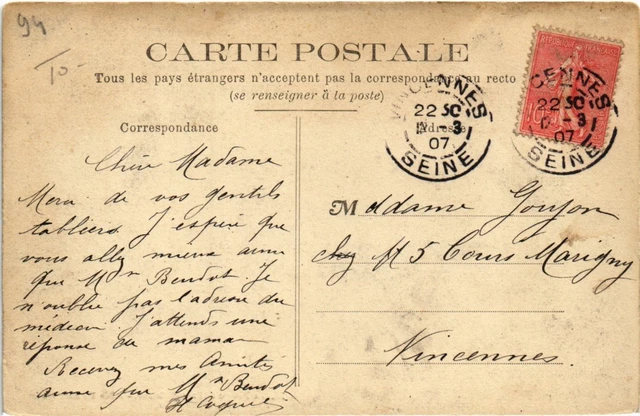 94
10
CARTE POSTALE
Tous les pays étrangers n'acceptent pas la correspondance au recto
(se renseigner à la poste)
Correspondance
Chère Madame
Merci de vos gentils
tabliers. J'espère que
vous allez mieux ainsi
que Mr Beudot. Je
n'oublie pas l'adresse du
médecin j'attends une
réponse de maman
Recevez mes Amitiés
ainsi que Mr Beudot
H
Adresse
Madame Goujon
chez 5 Cours Marigny
Vincennes
VINCENNES
22 3 07
SEINE
RÉPUBLIQUE FRANÇAISE
CENNES
22 3 07
SEINE